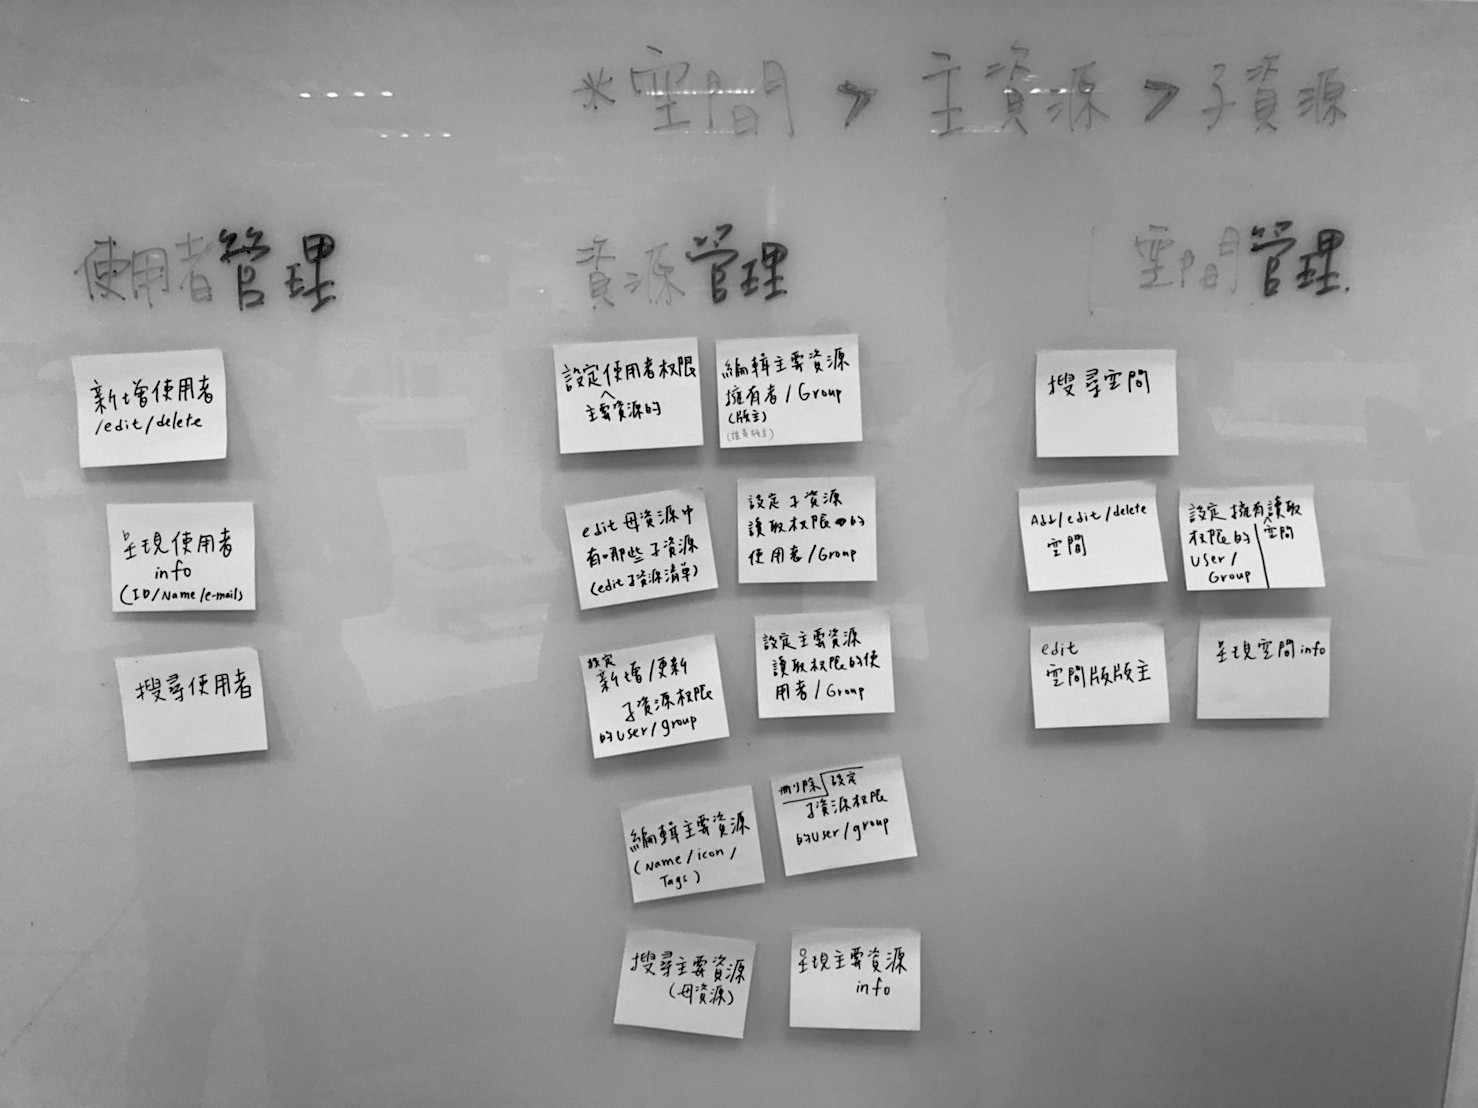 *空間 > 主資源 > 子資源
使用者管理
新增使用者
/edit/delete
呈現使用者
info
(ID/Name/e-mails
搜尋使用者
資源管理
設定使用者权限
^
主要資源的
編輯主要資源
擁有者/Group
(版主)
edit 母資源中
有哪些子資源
(edit 子資源清單)
設定子資源
讀取权限的
使用者/Group
設定
新增/更新
子資源权限
的user/group
設定主要資源
讀取权限的使
用者/Group
編輯主要資源
(Name/icon/
Tags)
刪除 設定
子資源权限
的user/group
搜尋主要資源
(母資源)
呈現主要資源
info
空間管理
搜尋空間
Add/edit/delete
空間
設定擁有讀取
权限的 空間
User/
Group
edit
空間版版主
呈現空間info